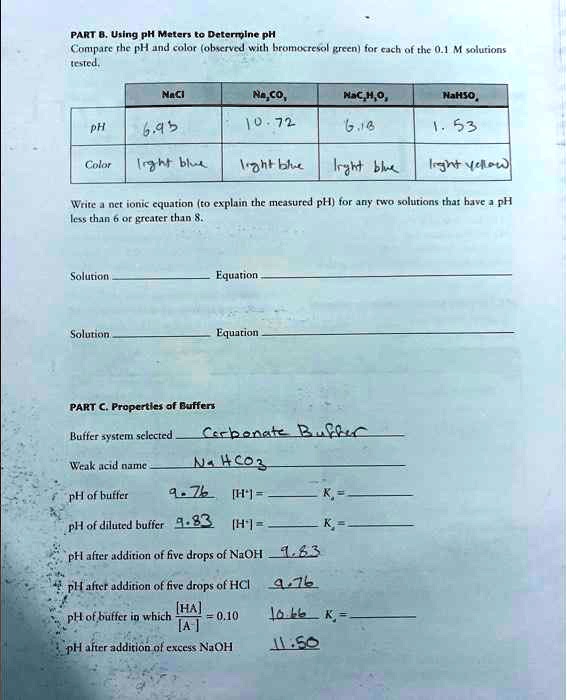 PART B. Using pH Meters to Determine pH
Compare the pH and color (observed with bromocresol green) for each of the 0.1 M solutions
tested.
NaCl Na₂CO₃ NaC₂H₃O₂ NaHSO₄
pH 6.93 10.72 6.18 1.53
Color light blue light blue light blue light yellow
Write a net ionic equation (to explain the measured pH) for any two solutions that have a pH
less than 6 or greater than 8.
Solution Equation
Solution Equation
PART C. Properties of Buffers
Buffer system selected Carbonate Buffer
Weak acid name NaHCO3
pH of buffer 9.76 [H⁺] = Kₐ =
pH of diluted buffer 9.83 [H⁺] = Kₐ =
pH after addition of five drops of NaOH 9.83
pH after addition of five drops of HCl 9.76
pH of buffer in which [HA] / [A⁻] = 0.10 10.66 Kₐ =
pH after addition of excess NaOH 11.50